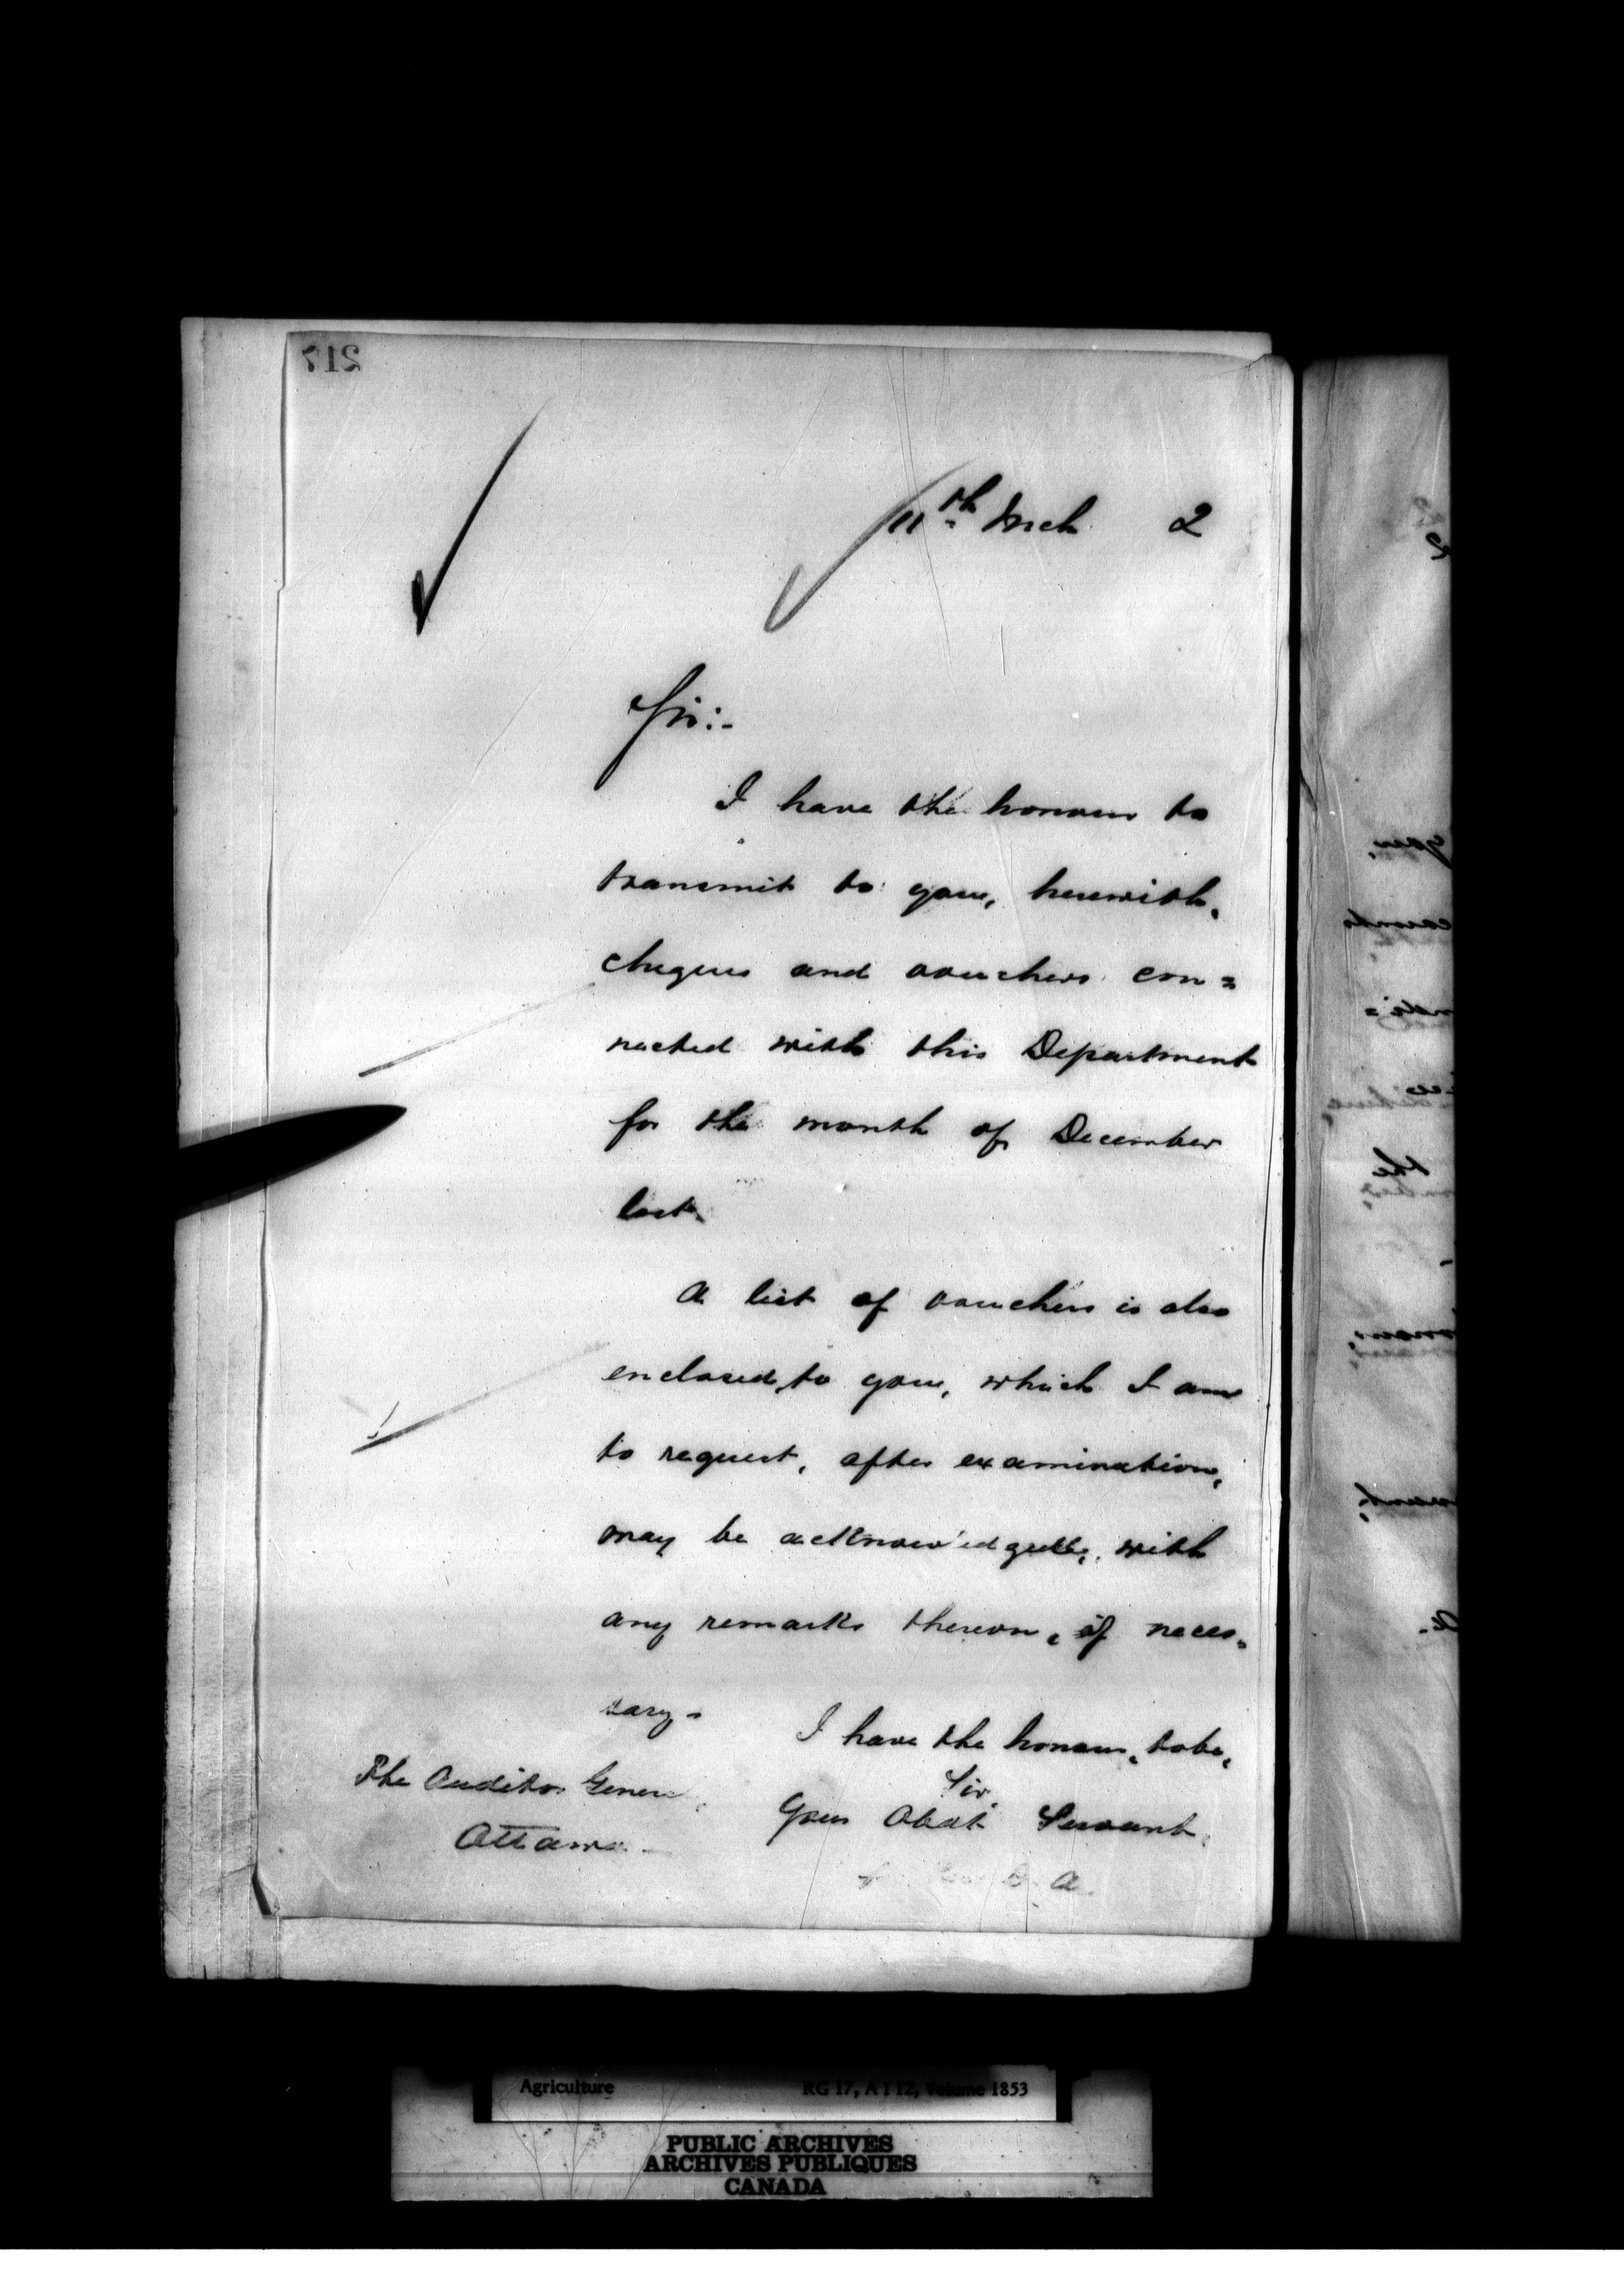 217
11th Mch 2
Sir:-
I have the honour to
transmit to you, herewith,
cheques and vouchers con=
nected with this Department
for the month of December
last.
A list of vouchers is also
enclosed, to you, which I am
to request, after examination,
may be acknowledged, with
any remarks thereon, if neces=
sary.
I have the honour, to be,
Sir,
Your Obdt Servant,
The Auditor General,
Ottawa
A.
Agriculture RG 17, A I 12, Volume 1853
PUBLIC ARCHIVES
ARCHIVES PUBLIQUES
CANADA